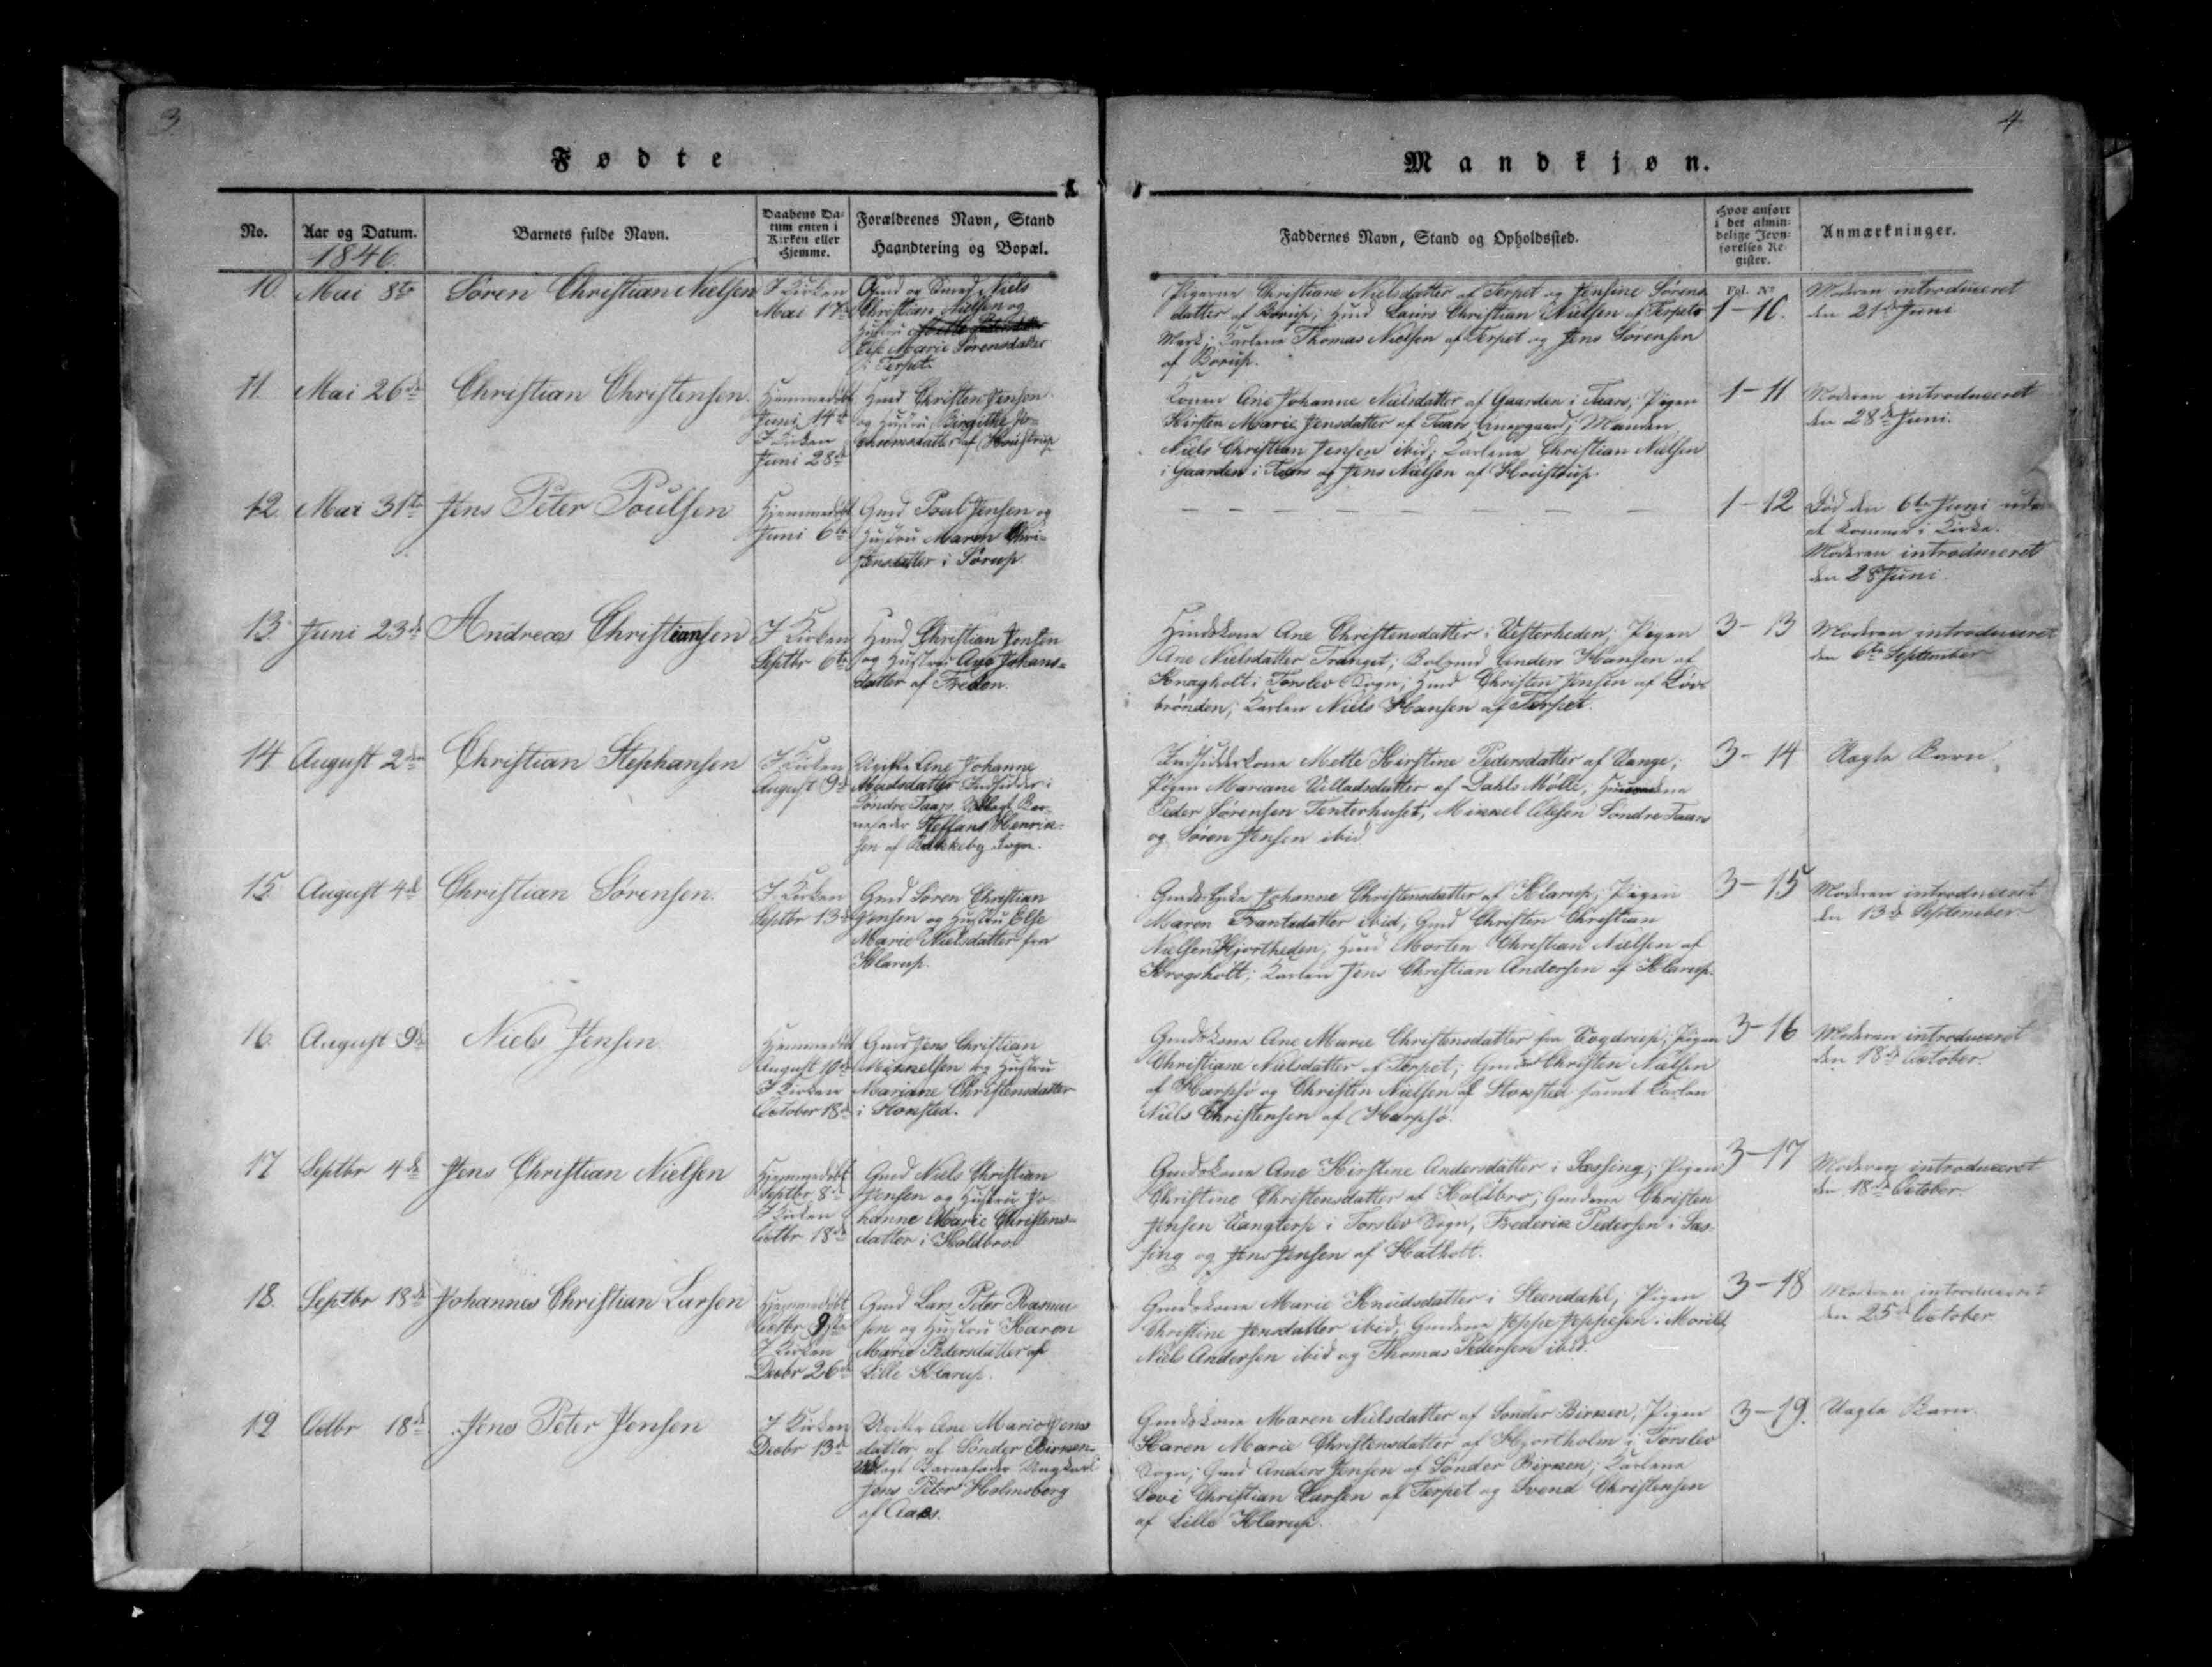 3
4
Fødte
Mandkjøn.
No.
Aar og Datum.
1846.
Barnets fulde Navn.
Daabens Da-
tum enten i
Kirken eller
Hjemme.
Forældrenes Navn, Stand
Haandtering og Bopæl.
Faddernes Navn, Stand og Opholdssted.
Hvor anført
i det almin-
delige Jevn-
førelses Re-
gister.
Anmærkninger.
Fol. No
10.
Mai 8de
Søren Christian Nielsen
I Kirken
Mai 17de
Gmd og Smed Niels
Christian Nielsen og
Hustru
Else Marie Sørensdatter
i Terpet.
Pigerne Christiane Nielsdatter af Terpet og Jensine Sørens
datter af Borup; Hmd Laurs Christian Nielsen af Terpet
Mark; Karlene Thomas Nielsen af Terpet og Jens Sørensen
af Borup.
1-10.
Moderen introduceret
den 21de Juni
11.
Mai 26de
Christian Christensen.
Hjemmedøbt
Juni 14de
I Kirken
Juni 28de
Hmd Christen Jensen
og Hustru Birgithe Jo-
chumsdatter af Houstrup
Konen Ane Johanne Nielsdatter af Gaarden i Taars; Pigen
Kirsten Marie Jensdatter af Taars; Manden
Niels Christian Jensen ibid; Karlene Christian Nielsen
i Gaarden i Taars og Jens Nielsen af Houstrup.
1-11
Moderen introduceret
den 28de Juni.
12.
Mai 31te
Jens Peter Poulsen
Hjemmedøbt
Juni 6te
Gmd Poul Jensen og
Hustru Maren Chri-
stensdatter i Sørup.
1-12
Død den 6te Juni uden
at komme i Kirke.
Moderen introduceret
den 28 Juni.
13.
Juni 23de
Andreas Christiansen
I Kirken
Septbr 6te
Hmd Christian Jensen
og Hustru Ane Johans-
datter af Freden.
Hmdskone Ane Christensdatter i Vesterheden; Pigen
Ane Nielsdatter Tranget; Bolsmd Anders Hansen af
Knagholt i Torslev Sogn; Hmd Christen Jensen af Løve
brønden; Karlen Niels Hansen af Terpet.
3-13
Moderen introduceret
den 6te September
14.
August 2den
Christian Stephansen
I Kirken
August 9de
Ugifte Ane Johanne
Madsdatter Indsidder i
Søndre Taars. Udlagt Bar-
nefader Steffans Henrik-
sen af Rakkeby Sogn.
Indsidderkone Mette Kirstine Pedersdatter af Vange;
Pigen Mariane Villadsdatter af Dahls Mølle, Husmændene
Peder Sørensen Tenterhuset, Mikkel Olesen Søndre Taars
og Søren Jensen ibid
3-14
Uægte Barn
15.
August 4de
Christian Sørensen.
I Kirken
Septbr 13de
Gmd Søren Christian
Jensen og Hustru Else
Marie Nielsdatter fra
Klarup.
Johanne Christensdatter af Klarup; Pigen
Maren Frantsdatter ibid; Gmd Christen Christian
Nielsen Hjortheden; Hmd Morten Christian Nielsen af
Krogsholt; Karlen Jens Christian Andersen af Klarup.
3-15
Moderen introduceret
den 13de September
16.
August 9de
Niels Jensen
Hjemmedøbt
August 10de
I Kirken
October 18de
Gmd Jens Christian
Mikkelsen og Hustru
Mariane Christensdatter
i Stonsted.
Gmdskone Ane Marie Christensdatter fra Vogdrup; Pigen
Christiane Nielsdatter af Terpet; Gmdne Christen Nielsen
af Harpsø og Christen Nielsen af Stonsted samt Karlen
Niels Christensen af Harpsø.
3-16
Moderen introduceret
den 18de October.
17
Septbr 4de
Jens Christian Nielsen
Hjemmedøbt
Septbr 8de
I Kirken
Octbr 18de
Gmd Niels Christian
Jensen og Hustru Jo-
hanne Marie Christens-
datter i Holdbro
Gmdskone Ane Kirstine Andersdatter i Sæssing; Pigen
Christine Christensdatter af Holdbro; Gmdene Christen
Jensen Vangterp i Torslev Sogn, Frederik Pedersen i Sæs-
sing og Jens Jensen af Hatholt.
3-17
Moderen introduceret
den 18de October.
18.
Septbr 18de
Johannes Christian Larsen
Hjemmedøbt
Octbr 9de
I Kirken
Decbr 26de
Gmd Lars Peter Rasmu-
sen og Hustru Karen
Marie Pedersdatter af
Lille Klarup.
Gmdskone Marie Knudsdatter i Steendahl; Pigen
Christine Jensdatter ibid, Gmdene Jeppe Jeppesen i Morild
Niels Andersen ibid og Thomas Pedersen ibid.
3-18
Moderen introduceret
den 25de October
19
Octbr 18de
Jens Peter Jensen
I Kirken
Decbr 13de
Ugifte Ane Marie Jens
datter af Sønder Birken-
Udlagt Barnefader Ungkarl
Jens Peter Holmsberg
af Aaes.
Gmdskone Maren Nielsdatter af Sønder Birken, Pigen
Karen Marie Christensdatter af Hjortholm i Torslev
Sogn; Gmd Anders Jensen af Sønder Birken; Karlene
Levi Christian Larsen af Terpet og Svend Christensen
af Lille Klarup.
3-19.
Uægte Barn.